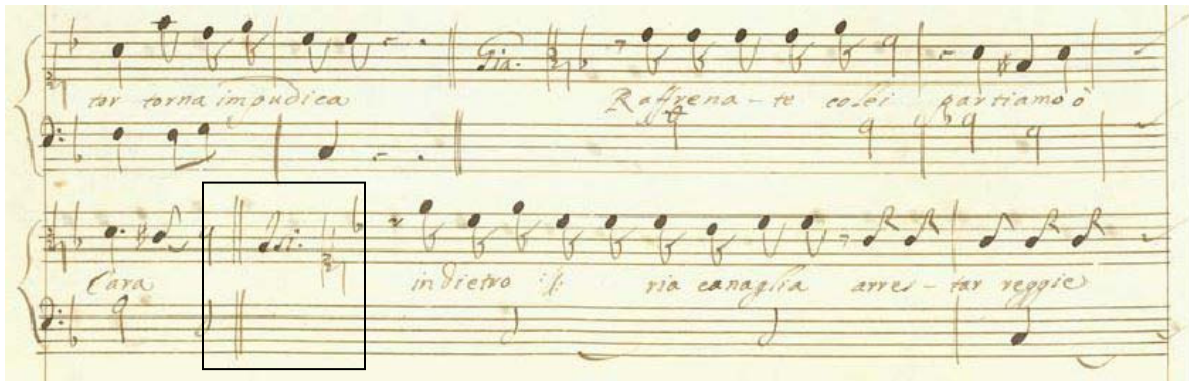 Gia:
tar torna impudica Raffrena - te colei partiamo ò
Isi:
Cara indietro :||: ria canaglia arres - tar reggie